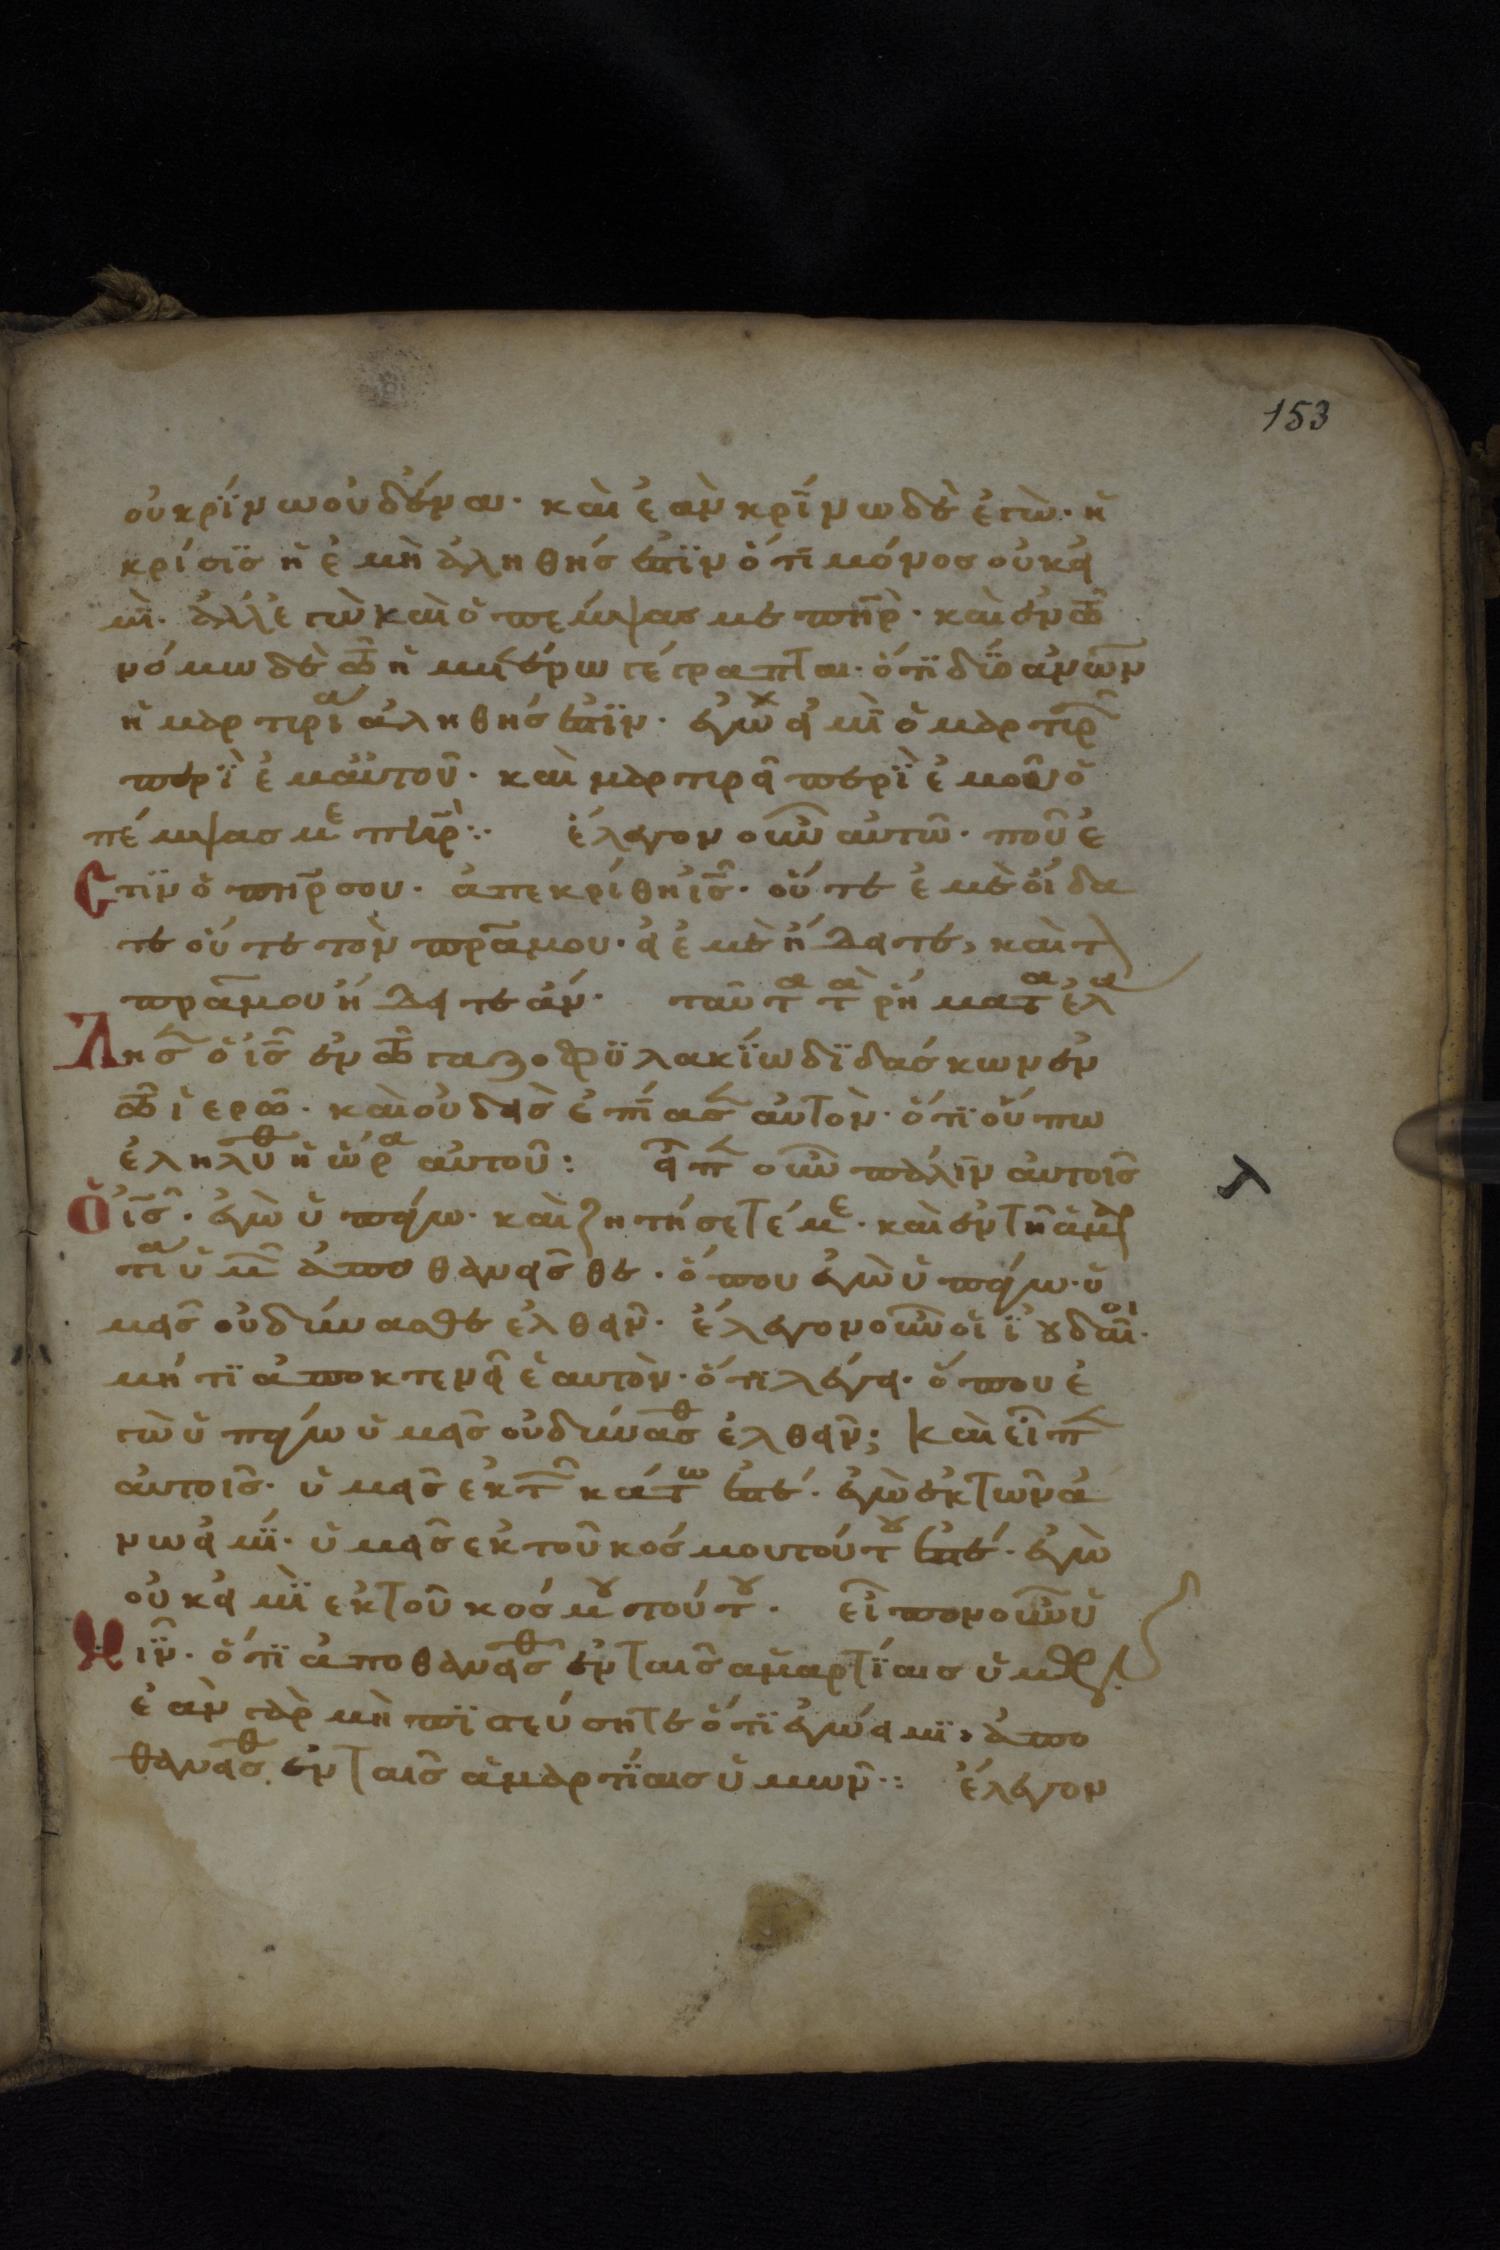 153
οὐ κρίνω οὐδένα· καὶ ἐὰν κρίνω δὲ ἐγὼ· ἡ
κρίσϊς ἡ ἐμὴ ἀληθής ἐστϊν ὅτι μόνος οὐκ εἰ
μὶ· ἀλλ' ἐγὼ καὶ ὁ πέμψας με πηρ̅· καὶ ἐν τῶ
νόμω δὲ τῶ ἡμετέρω γέγραπται· ὅτϊ δύο ἀν̅ω̅ν
ἡ μαρτυρία ἀληθής ἐστϊν· ἐγώ εἰμϊ ὁ μαρτυρῶ
περὶ ἐμαυτοῦ· καὶ μαρτυρεῖ περὶ ἐμοῦ ὁ
πέμψας με πηρ̅:· ἔλεγον οὖν αὐτῶ· ποῦ ἐ
στϊν ὁ πηρ̅ σου· ἀπεκρίθη ις̅· οὔτε ἐμὲ οἴδα
τε οὔτε τὸν πρα̅ μου· εἰ ἐμὲ ἤδειτε, καὶ τ
πρα̅ μου ἤδειτε ἄν· ταῦτα τὰ ῥήματα ἐλά
λησ ὁ ις̅ ἐν τῶ γαζοφϋλακίω δϊδάσκων ἐν
τῶ ἱερῶ· καὶ οὐδεὶσ ἐπίασ αὐτὸν· ὅτϊ οὔπω
ἐληλύθ ἡ ὥρα αὐτοῦ: εἶπ οὖν πάλιν αὐτοῖς
ὁ ις̅· ἐγὼ ὑπάγω· καὶ ζητήσετέ με· καὶ ἐν τῆ ἁμαρ
τία ὑμ ἀποθανεῖσθε· ὅπου ἐγὼ ὑπάγω· ὑ
μεῖς οὐ δύνασθε ἐλθεῖν· ἔλεγον οὖν οἱ ϊουδαῖοι·
μήτϊ ἀποκτενεῖ ἑαυτὸν· ὅτϊ λέγει· ὅπου ἐ
γὼ ὑπάγω ὑμεῖς οὐ δύνασθ ἐλθεῖν; καὶ εἶπ
αὐτοῖς· ὑμεῖς ἐκ τ κάτω ἐστέ· ἐγὼ ἐκ τῶν ἄ
νω εἰμϊ· ὑμεῖς ἐκ τοῦ κόσμου τούτου ἐστέ· ἐγὼ
οὐκ εἰμϊ ἐκ τοῦ κόσμου τούτου· εἶπον οὖν ὑ
μῖν· ὅτϊ ἀποθανεῖσθ ἐν ταῖς ἁμαρτίαις ὑμ
ἐὰν γὰρ μὴ πϊστεύσητε ὅτϊ ἐγώ εἰμϊ, ἀπο
θανεῖσθ ἐν ταῖς ἁμαρτίαις ὑμῶν:· ἔλεγον